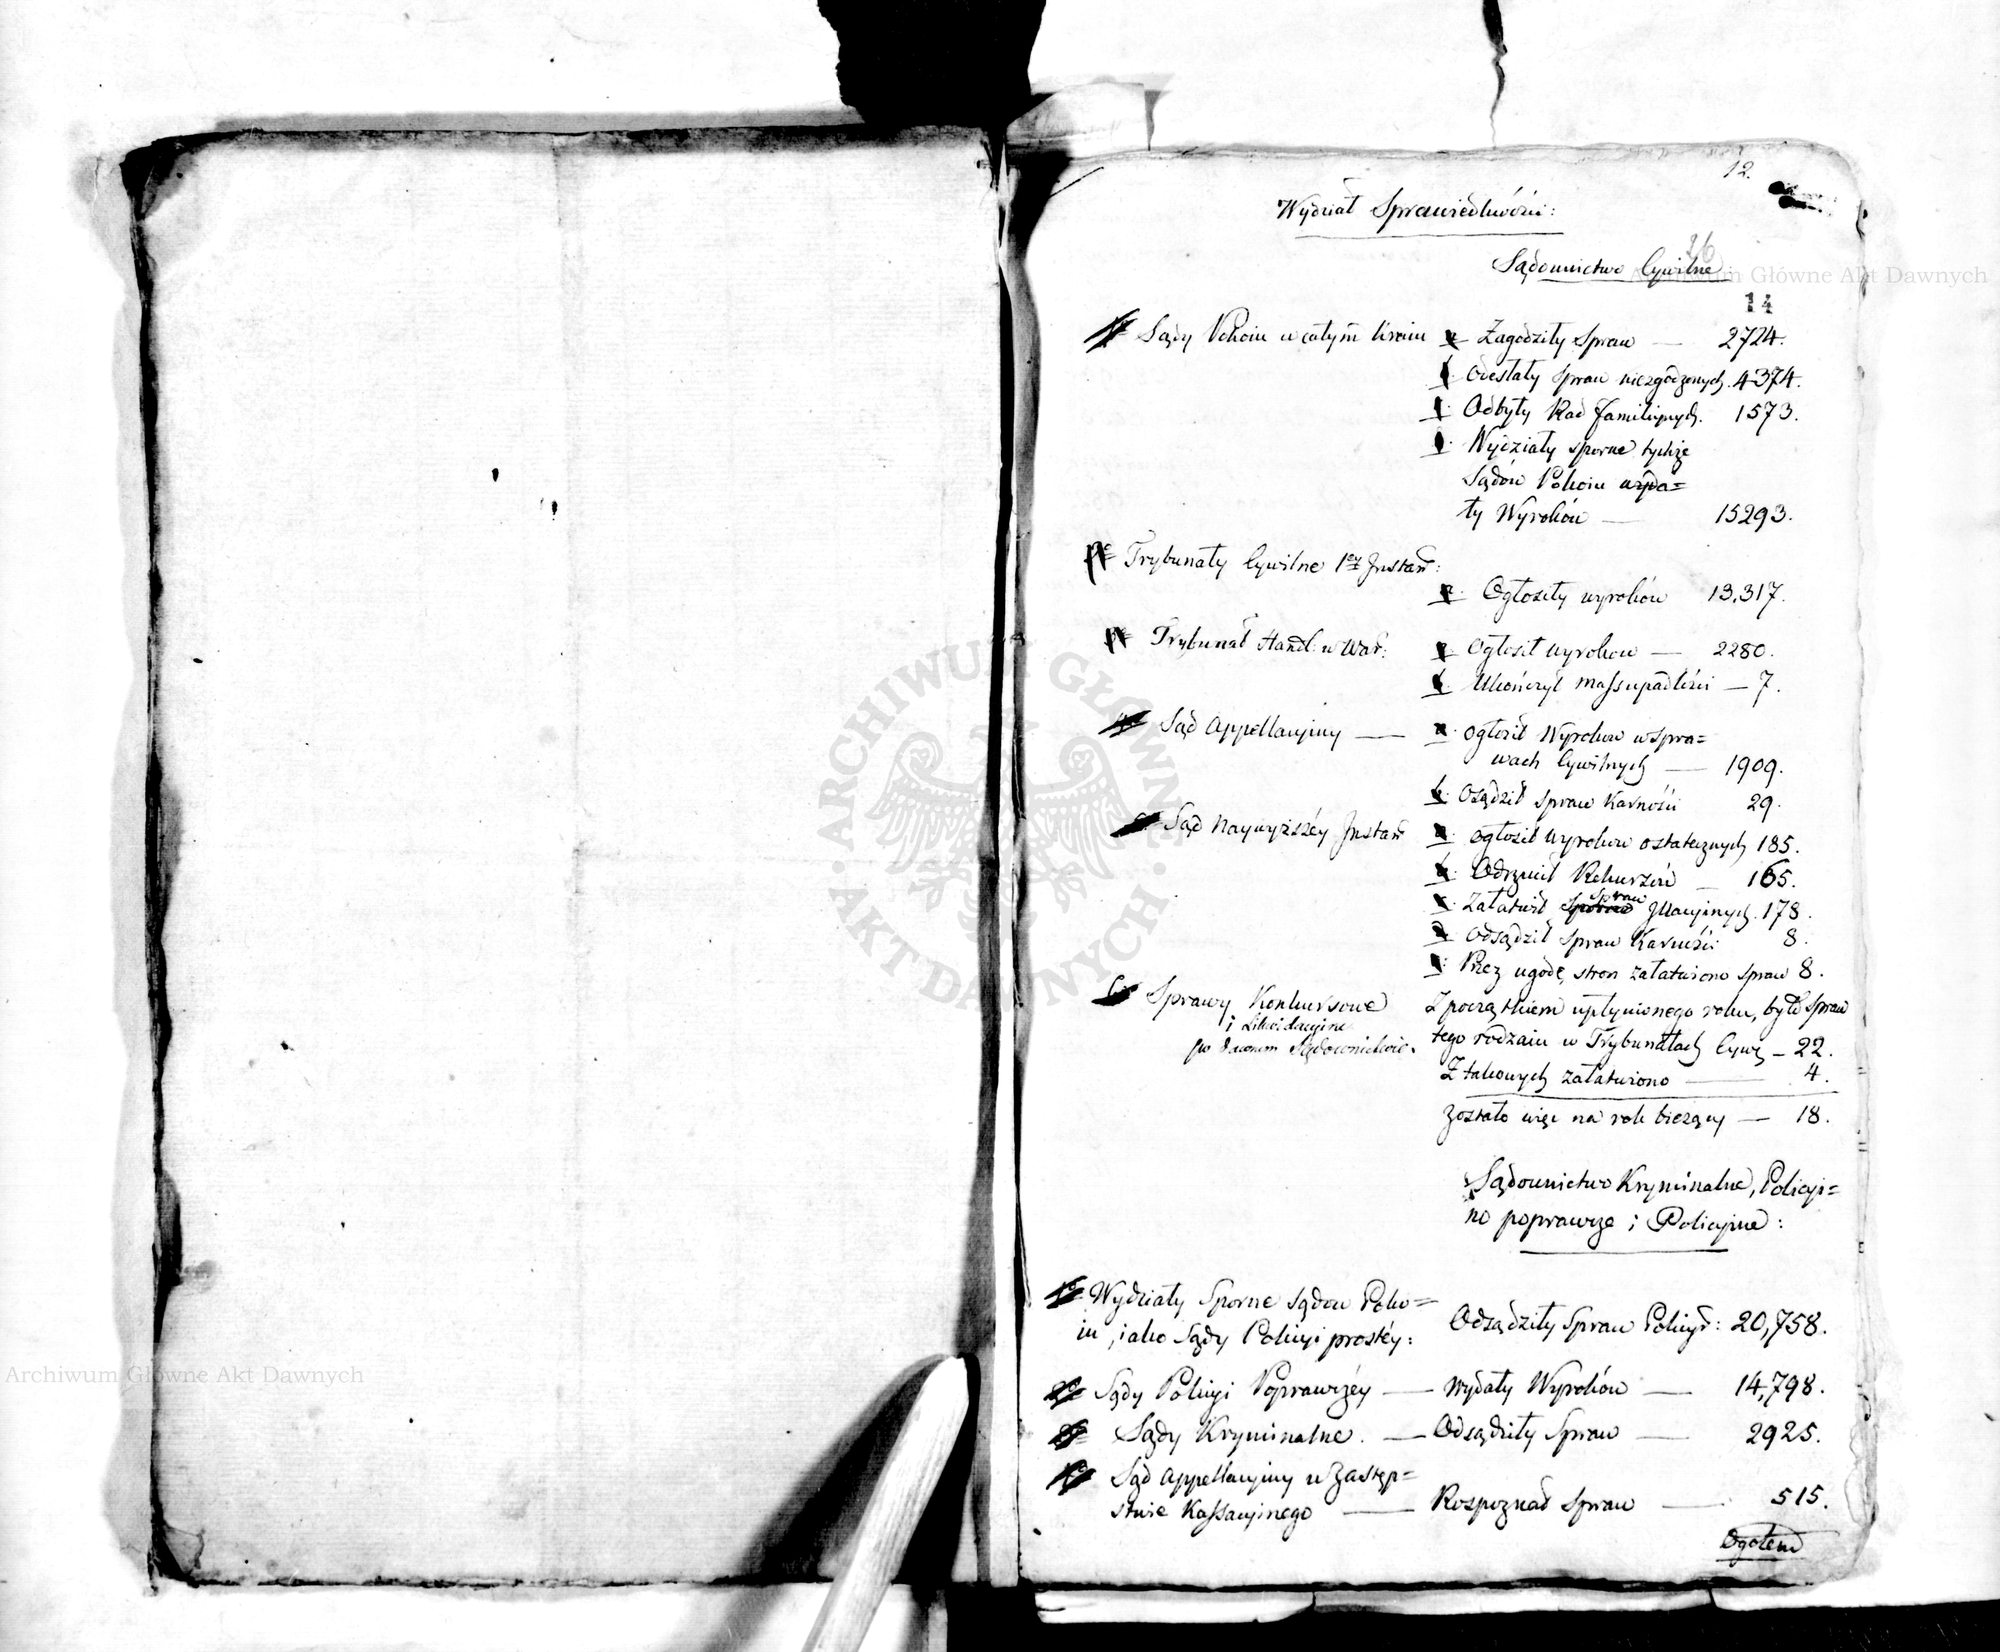 12.
Wydział Sprawiedliwości:
26
Sądownictwo Cywilne
14
1º Sądy Pokoiu w całym kraiu a. Zagodziły Spraw — 2724.
b. Odesłały spraw niezgodzonych. 4374.
Odbyły Rad familiynych. 1573.
Wydziały sporne tychże
Sądów Pokoiu wyda=
ły Wyroków — 15293.
Trybunały Cywilne 1ey Instan:
a. Ogłosiły wyroków 13,317.
Trybunał Handl: w War: a. Ogłosił wyroków — 2280.
b. Ukończył mass upadłości — 7.
4º Sąd Appellacyiny — a. ogłosił Wyroków w spra=
wach Cywilnych — 1909.
b. Osądził spraw Karności 29.
Sąd Naywyższéy Instan a. ogłosił wyroków ostatecznych 185.
b. Odrzucił Rekursów — 165.
Spraw
c. Załatwił Sporne Illacyinych. 178.
d. Odsądził spraw Karności 8.
Przez ugodę stron załatwiono spraw 8.
6º Sprawy Konkursowe Z początkiem upłynionego roku, było spraw
i Likwidacyine
tego rodzaiu w Trybunałach Cyw: — 22.
po dawnem Sądownictwie.
Z takowych załatwiono — 4.
Zostało więc na rok bieżący — 18.
Sądownictwo Kryminalne, Policyi=
no poprawcze i Policyine:
1º Wydziały Sporne Sądów Poko=
iu, iako Sądy Policyi prostéy: Odsądziły Spraw Policyi: 20,758.
2º Sądy Policyi Poprawczéy — Wydały Wyroków — 14,798.
3º Sądy Kryminalne. — Odsądziły Spraw — 2925.
4º Sąd Appellacyiny w Zastęp=
stwie Kassacyinego — Rospoznał spraw — 515.
Ogółem
Archiwum Główne Akt Dawnych
Archiwum Główne Akt Dawnych
· ARCHIWUM GŁÓWNE · AKT DAWNYCH ·